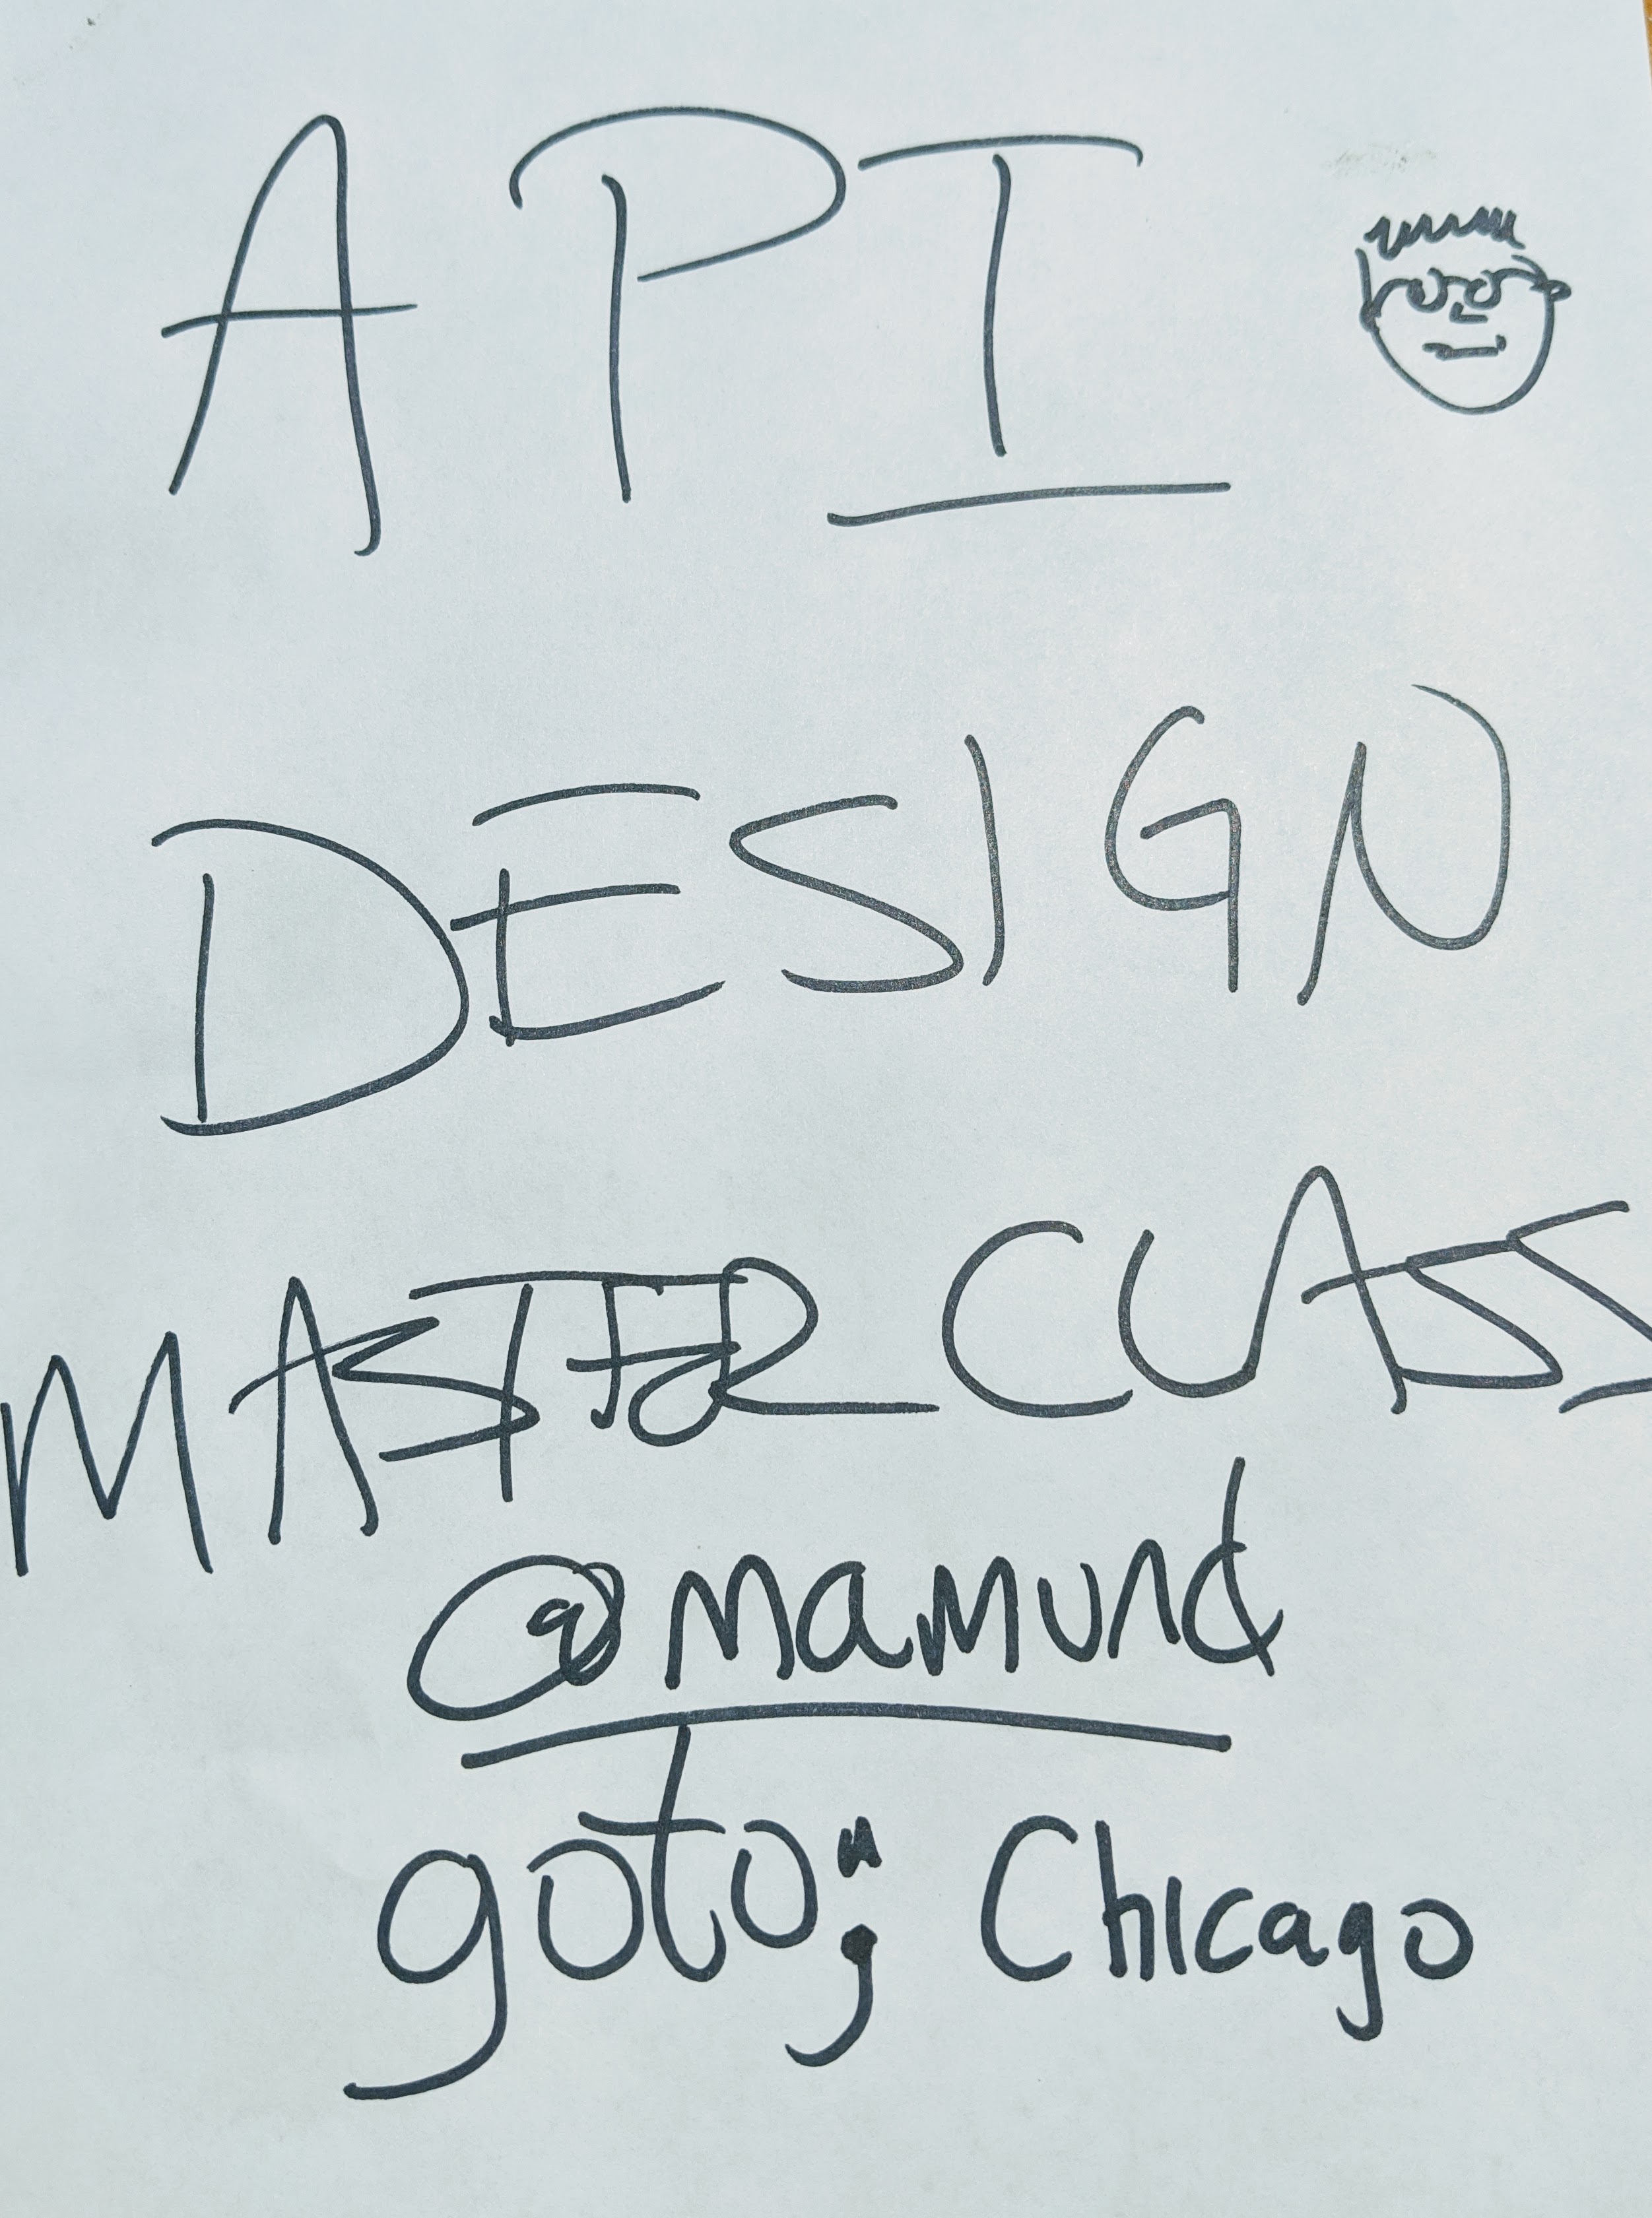 API
DESIGN
MASTER CLASS
@mamund
goto; Chicago